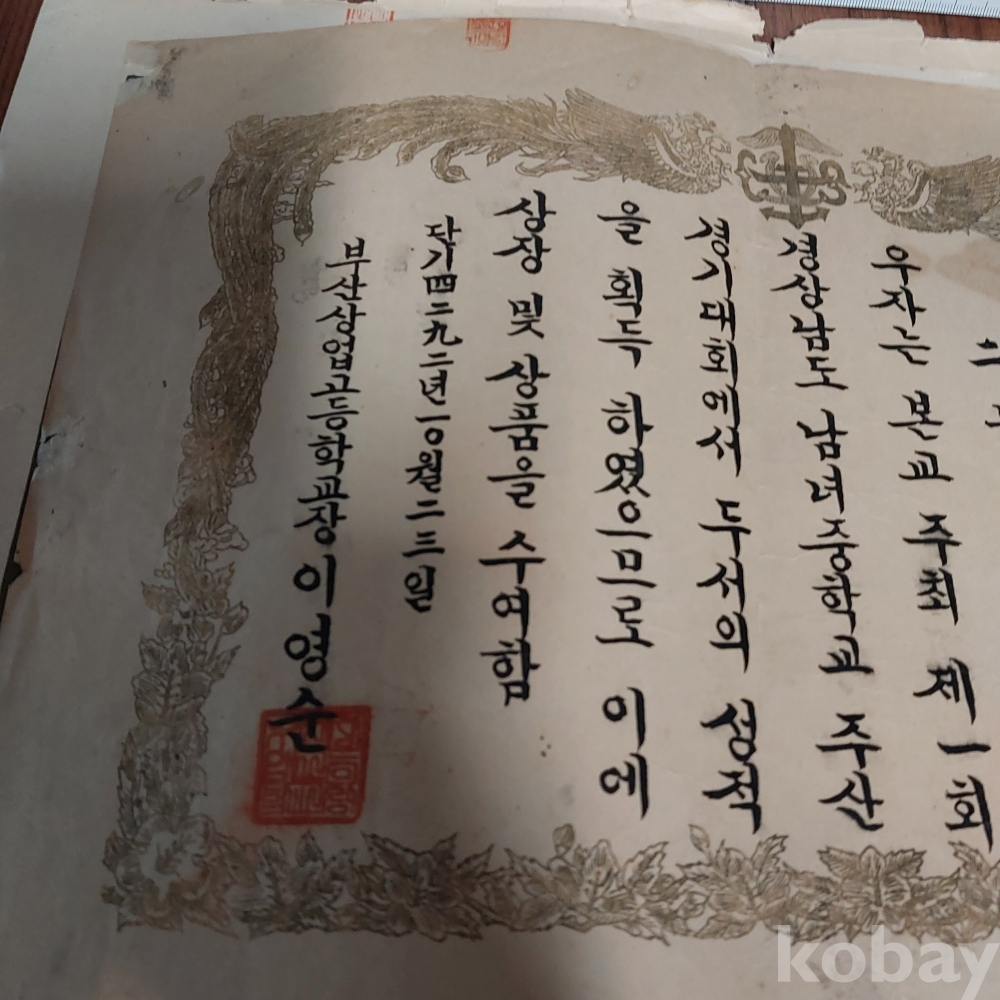 우자는 본교 주최 제一회
경상남도 남녀중학교 주산
경기대회에서 두서의 성적
을 획득 하였으므로 이에
상장 및 상품을 수여함
단기四二九二년一〇월二三일
부산상업고등학교장 이영순
kobay